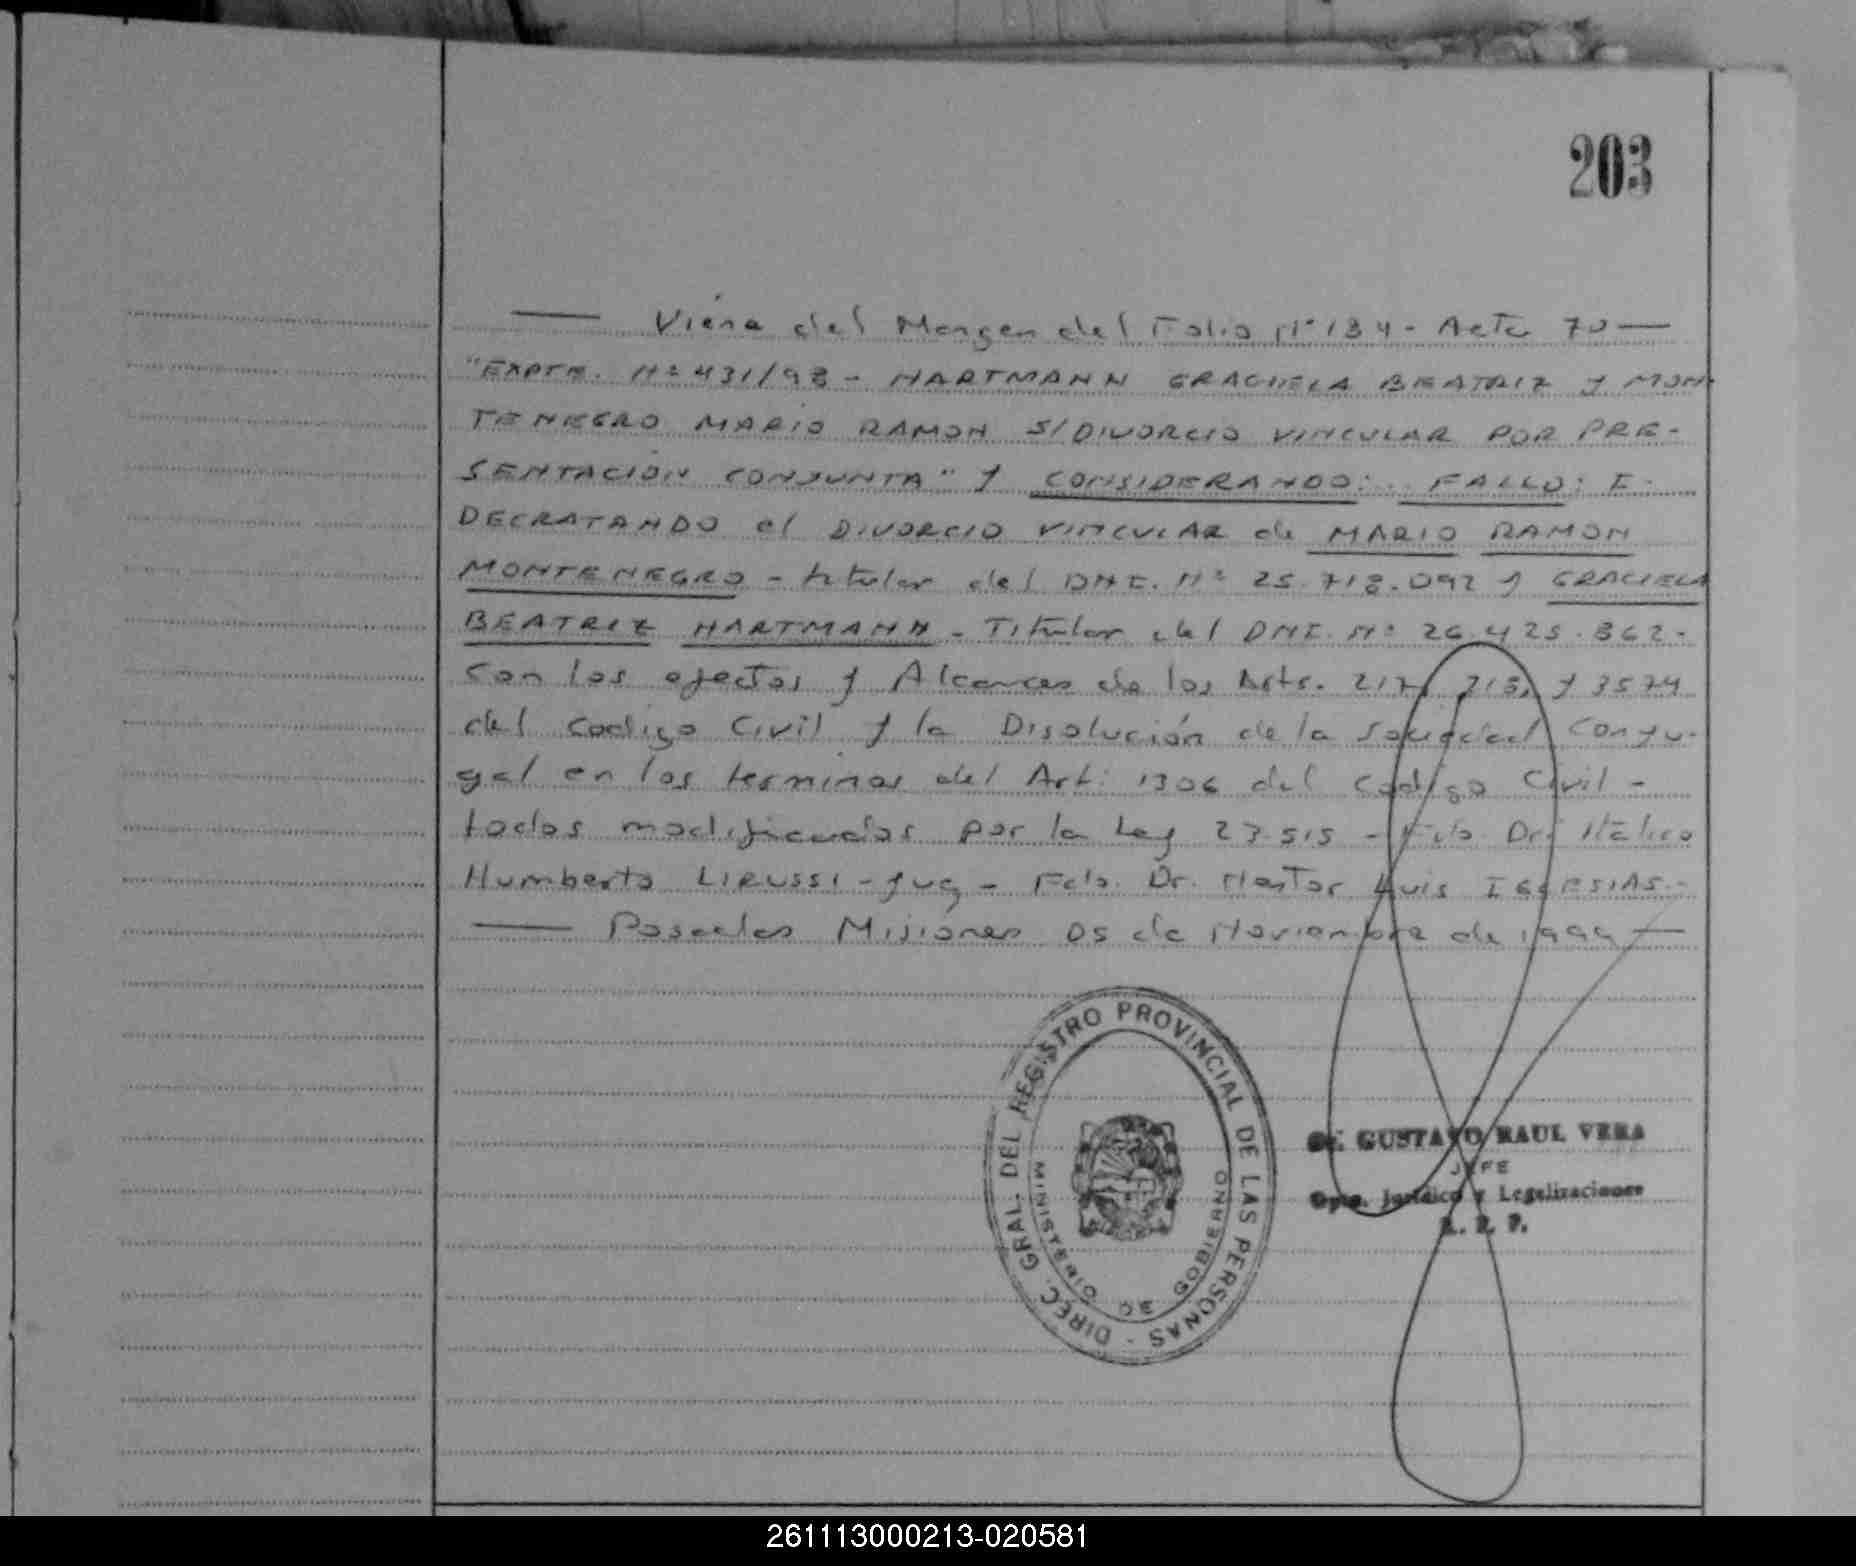 203
Viene del Margen del Folio Nº 134 - Acta 70
"EXPTE. Nº 431/98 - HARTMANN GRACIELA BEATRIZ y MON-
TENEGRO MARIO RAMON S/DIVORCIO VINCULAR POR PRE-
SENTACION CONJUNTA" y CONSIDERANDO: FALLO: I-
DECRATANDO el DIVORCIO VINCULAR de MARIO RAMON
MONTENEGRO - titular del DNI. Nº 25.718.092 y GRACIELA
BEATRIZ HARTMANN - Titular del DNI. Nº 26.425.862-
con los efectos y Alcances de los Arts. 217, 218, y 3574
del Codigo Civil y la Disolución de la Sociedad Conyu-
gal en los terminos del Art: 1306 del Codigo Civil -
todos modificados por la Ley 23.515 - Fdo. Dr. Italico
Humberto LIRUSSI - Juez - Fdo. Dr. Nestor Luis IGLESIAS.-
Posadas Misiones 05 de Noviembre de 1999
DIREC. GRAL. DEL REGISTRO PROVINCIAL DE LAS PERSONAS -
MINISTERIO DE GOBIERNO
Dr. GUSTAVO RAUL VERA
JEFE
Dpto. Jurídico y Legalizaciones
R. P. P.
261113000213-020581